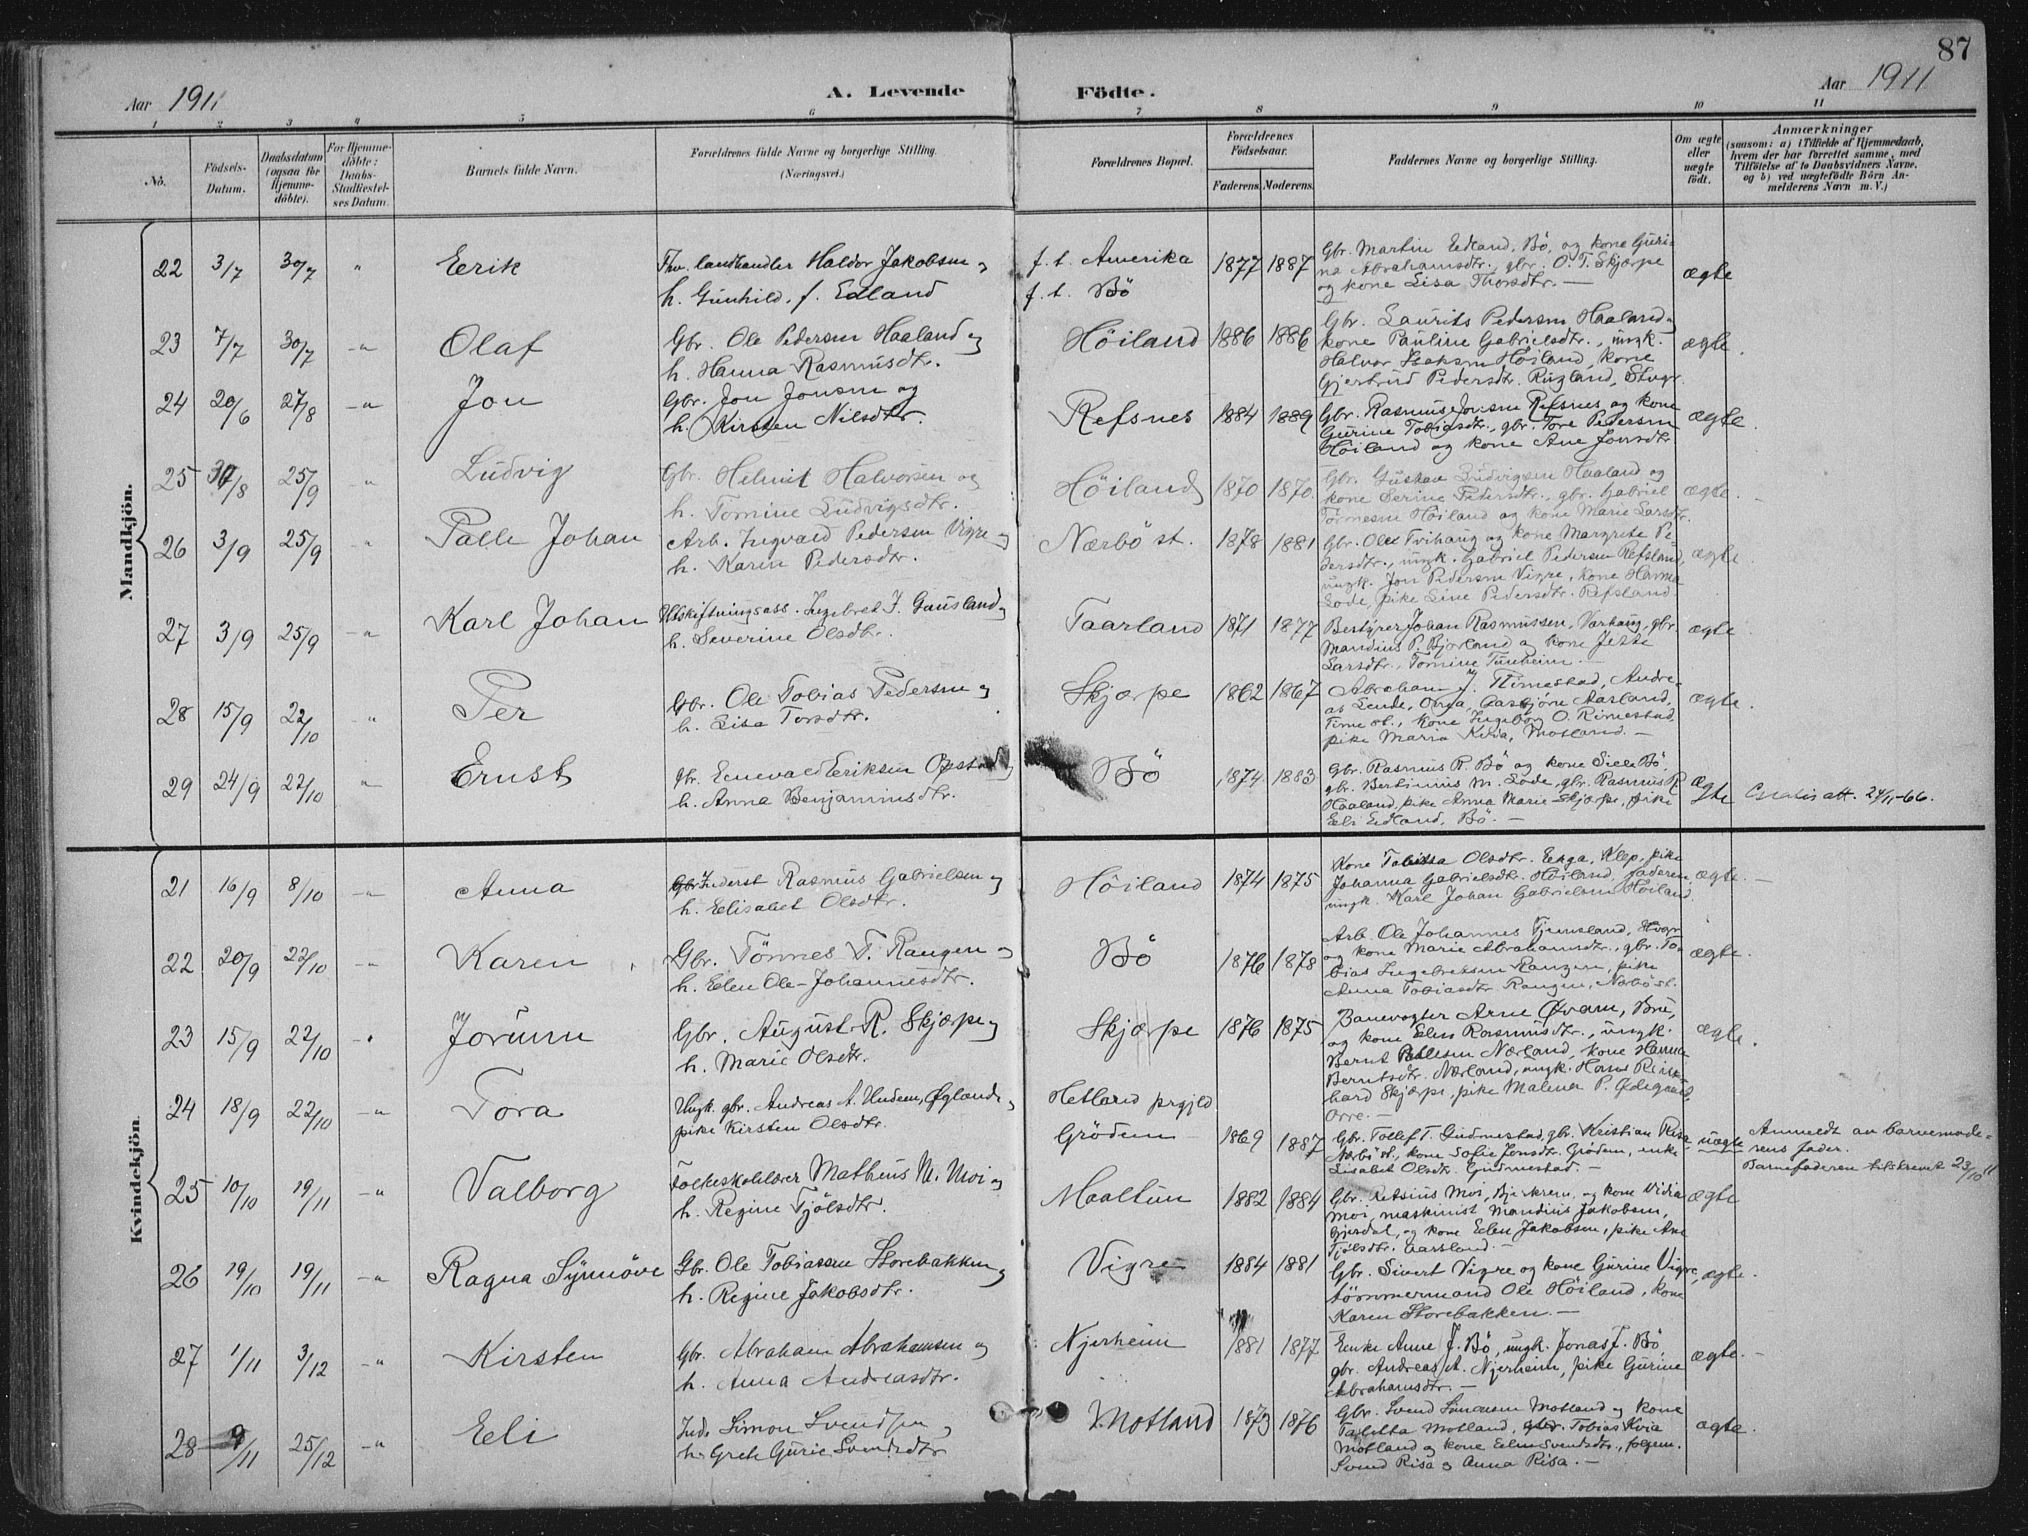 87
Aar 1911
A. Levende
Födte.
Aar 1911
1 2 3 4 5 6 7 8 9 10 11
No.
Födsels-
Datum.
Daabsdatum
(ogsaa for
Hjemme-
döbte).
For Hjemme-
döbte:
Daabs-
Stadfæstel-
ses Datum.
Barnets fulde Navn.
Forældrenes fulde Navne og borgerlige Stilling.
(Næringsvei.)
Forældrenes Bopæl.
Forældrenes
Födselsaar.
Faderens. Moderens.
Faddernes Navne og borgerlige Stilling.
Om ægte
eller
uægte
födt.
Anmærkninger
(saasom: a) i Tilfælde af Hjemmedaab,
hvem der har forrettet samme, med
Tilföielse af to Daabsvidners Navne,
og b) ved uægtefödte Börn An-
melderens Navn m. V.)
Mandkjön.
22 3/7 30/7 " Erik
Fhv. landhandler Haldor Jakobsen og
h. Gunhild, f. Edland
f. t. Amerika
f. t. Bö
1877 1887
Gbr. Martin Edland, Bö, og kone Guri-
na Abrahamsdtr., gbr. O. T. Skjærpe
og kone Lisa Thorsdtr. —
ægte
23 7/7 30/7 -"- Olaf
Gbr. Ole Pedersen Haaland og
h. Hanna Rasmusdtr.
Höiland 1886 1886
Gbr. Laurits Pedersen Haaland og
kone Pauline Gabrielsdtr., ungk.
Halvor Isaksen Höiland, kone
Gjertrud Pedersdtr. Rugland, Stvgr.
ægte.
24 20/6 27/8 -"- Jon
Gbr. Jon Jonsen og
h. Kirsten Nilsdtr.
Refsnes 1884 1889
Gbr. Rasmus Jonsen Refsnes og kone
Gurine Tobiasdtr., gbr. Tore Pedersen
Höiland og kone Ane Jonsdtr.
ægte.
25 /8 25/9 " Ludvig
Gbr. Helmik Halvorsen og
h. Tomine Ludvigsdtr.
Höiland 1870 1870.
Gbr. Gustav Ludvigsen Haaland og
kone Serine Pedersdtr., gbr. Gabriel
Tönnesen Höiland og kone Marie Larsdtr.
ægte.
26 3/9 25/9 " Palle Johan
Arb. Ingvald Pedersen Vigre og
h. Karen Pedersdtr.
Nærbö st. 1878 1881
Gbr. Ole Tvihaug og kone Margrete Pe-
dersdtr., ungk. Gabriel Pedersen Refsland,
ungk. Jon Pedersen Vigre, kone Hanna
Lode, pike Line Pedersdtr. Refsland
ægte.
27 3/9 25/9 -"- Karl Johan
Utskiftningsass. Ingebret J. Gausland og
h. Severine Olsdtr.
Taarland 1871 1877
Bestyrer Johan Rasmussen, Varhaug, gbr.
Mandius P. Bjorland og kone Jette
Larsdtr., Tomine Tunheim. —
ægte.
28 15/9 22/10 -"- Per
Gbr. Ole Tobias Pedersen og
h. Lisa Torsdtr.
Skjærpe 1862 1867
Abraham J. Rimestad, Andre-
as Lende, Orre, Aasbjörn Aarland,
Time st., kone Ingeborg O. Rimestad,
pike Maria Kvia, Motland. —
ægte.
29 24/9 22/10 " Ernst
gbr. Enevald Eriksen Opstad og
h. Anna Benjaminsdtr.
Bö 1874 1883
Gbr. Rasmus R. Bö og kone Siele Bö,
gbr. Bertinius M. Lode, gbr. Rasmus R.
Haaland, pike Anna Marie Skjærpe, pike
Eli Edland, Bö. —
ægte
att. 24/11-66.
Kvindekjön.
21 16/9 8/10 -"- Anna
Inderst Rasmus Gabrielsen og
h. Elisabet Olsdtr.
Höiland 1874 1875
Kone Tabitta Olsdtr. Erga, Klep, pike
Johanna Gabrielsdtr. Höiland, faderen,
ungk. Karl Johan Gabrielsen Höiland.
ægte. —
22 20/9 22/10 -"- Karen
Gbr. Tönnes T. Rangen og
h. Elen Ole-Johannesdtr.
Bö 1876 1878
Arb. Ole Johannes Tjemsland, Hvgr.
og kone Marie Abrahamsdtr., gbr. To-
bias Ingebretsen Rangen, pike
Anna Tobiasdtr. Rangen, Nærbö st.
ægte.
23 15/9 22/10 -"- Jorunn
Gbr. August R. Skjærpe og
h. Marie Olsdtr.
Skjærpe 1876 1875
Banevogter Arne Övram, Brue,
og kone Elen Rasmusdtr., ungk.
Bernt Pallesen Nærland, kone Hanna
Berntsdtr. Nærland, ungk. Hans Rein-
hard Skjærpe, pike Malena P. Ödegaard,
Orre. —
ægte.
24 18/9 22/10 -"- Tora
Ungk. gbr. Andreas A. Undem, Öglænd, og
pike Kirsten Olsdtr.
Hetland prgjld
Grödem
1869 1887
Gbr. Tollef T. Gudmestad, gbr. Kristian Risa,
Nærbö st., kone Sofie Jonsdtr. Grödem, enke
Lisabet Olsdtr. Gudmestad. —
uægte
Anmeldt av barnemode-
rens fader.
Barnefaderen tilskrevet 23/10 11
25 10/10 19/11 -"- Valborg
Folkeskolelærer Matheus N. Moi og
h. Regine Tjölsdtr.
Maaltun 1882 1884
Gbr. Retsius Moi, Bjerkrem, og kone Vidia
Moi, maskinist Mandius Jakobsen,
Gjesdal, og kone Elen Jakobsen, pike Ane
Tjölsdtr. Aarsland. —
ægte
26 19/10 19/11 -"- Ragna Synnöve
Gbr. Ole Tobiassen Storebakken og
h. Regine Jakobsdtr.
Vigre 1884 1881
Gbr. Sivert Vigre og kone Gurine Vigre,
tömmermand Ole Höiland, kone
Karen Storebakken. —
ægte.
27 1/11 3/12 -"- Kirsten
Gbr. Abraham Abrahamsen og
h. Anna Andreasdtr.
Njerheim 1881 1877
Enke Anne J. Bö, ungk. Jonas J. Bö,
gbr. Andreas A. Njerheim, pike Gurine
Abrahamsdtr. —
ægte. —
28 9/11 25/12 -"- Eli
Ind. Simon Svendsen og
h. Grete Gurie Svendsdtr.
Motland 1873 1876
Gbr. Svend Simonsen Motland og kone
Tabitta Motland, gbr. Tobias Kvia
Motland og kone Elen Svendsdtr.,
Svend Risa og Anna Risa. —
ægte.